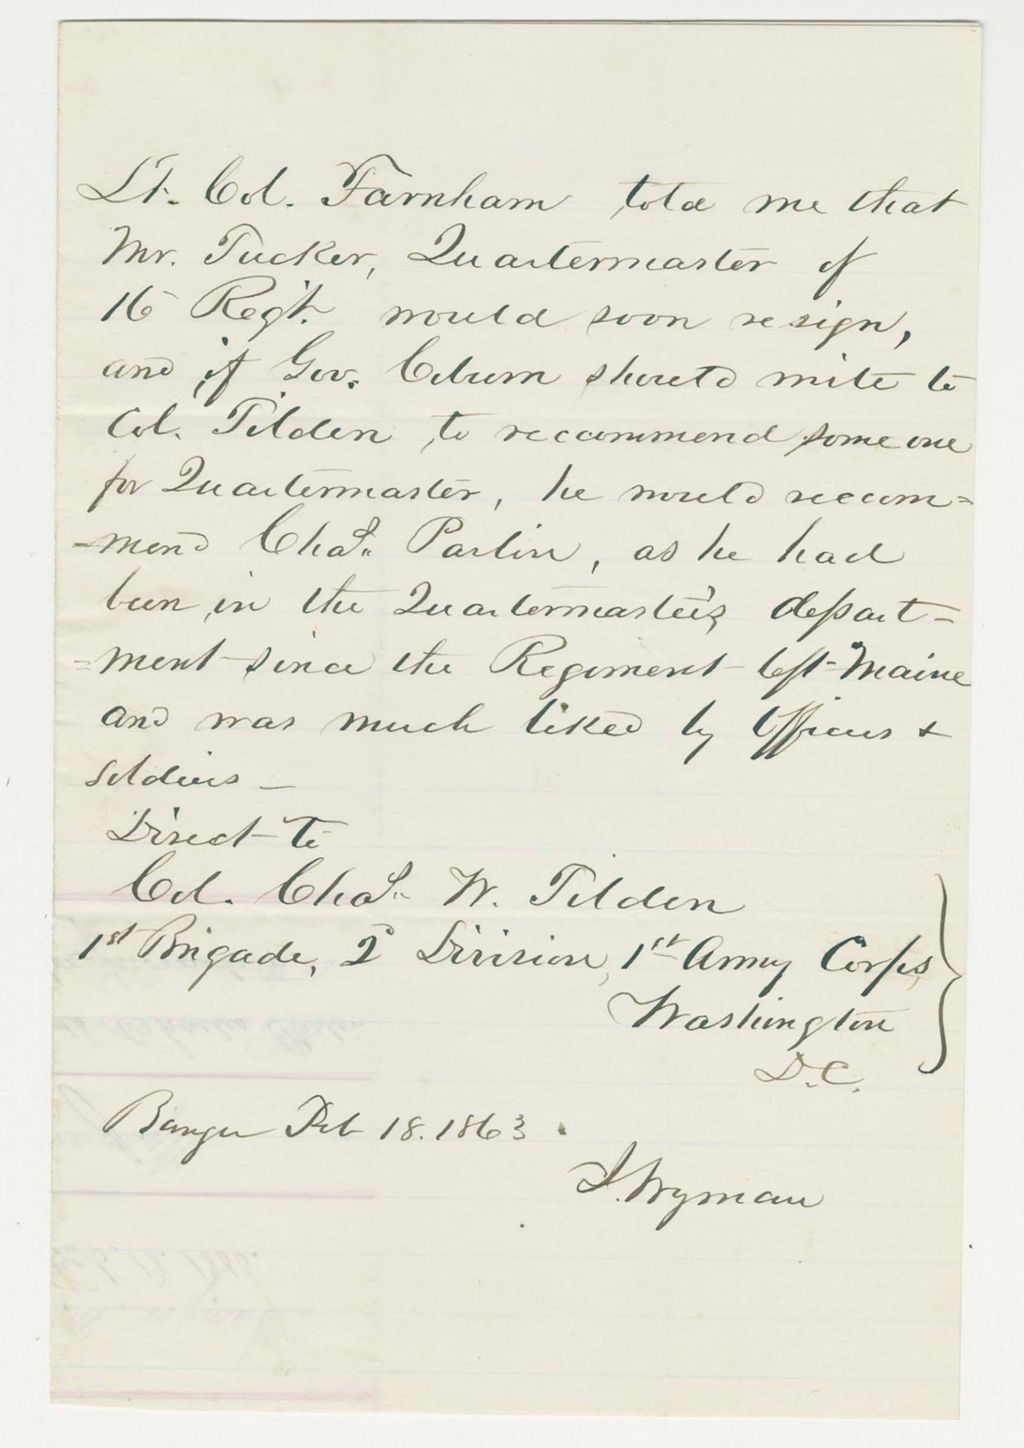 Lt. Col. Farnham told me that
Mr. Tucker, Quartermaster of
16 Regt. would soon resign,
and if Gov. Coburn should write to
Col. Tilden to recommend some one
for Quartermaster, he would recom=
=mend Chas. Parlin, as he had
been in the Quartermaster's depart=
=ment since the Regiment left Maine
and was much liked by Officers &
Soldiers—
Direct to
Col. Chas. W. Tilden
1st Brigade, 2d Division, 1st Army Corps,
Washington
D.C.
Bangor Feb 18. 1863.
J. Wyman